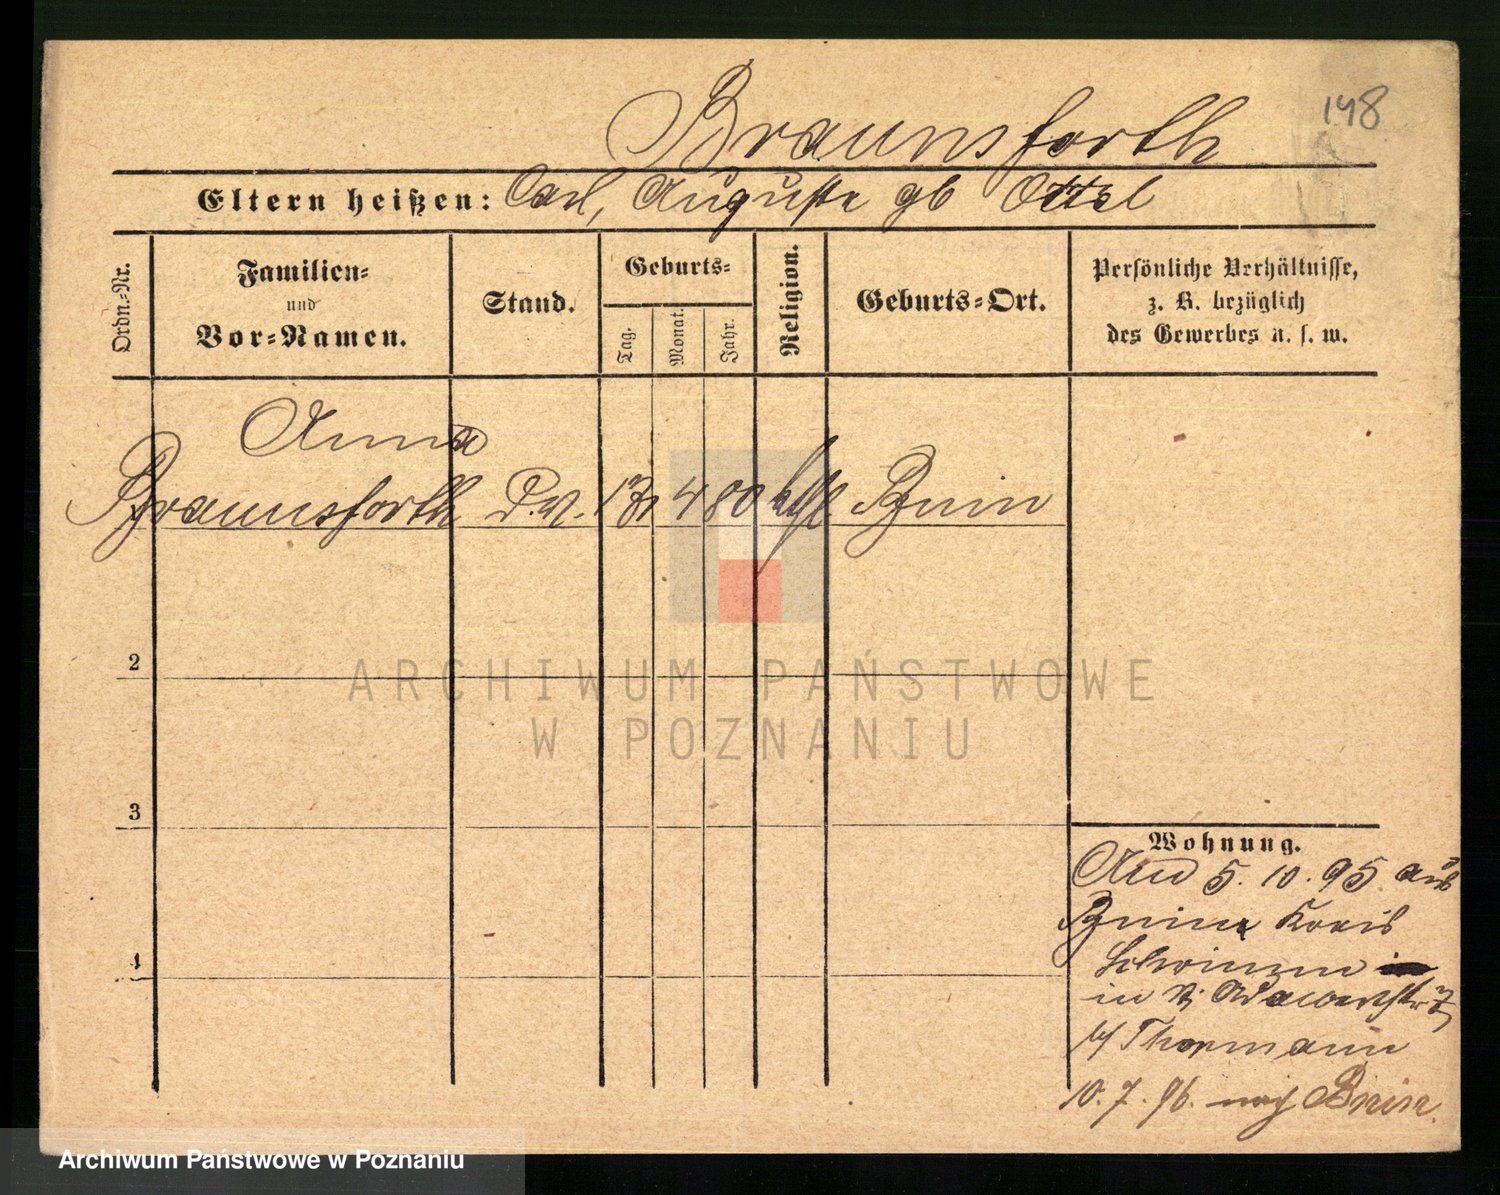 148
Braunsforth
Eltern heißen: Carl, Auguste gb Ottel
Ordn.-Nr.
Familien-
und
Vor-Namen.
Stand.
Geburts-
Tag.
Monat.
Jahr.
Religion.
Geburts-Ort.
Persönliche Verhältnisse,
z. B. bezüglich
des Gewerbes u. s. w.
Anna
Braunsforth
4 80
Bnin
2
3
4
Wohnung.
5. 10. 95 aus
Bnin Kreis
Schrimm
in
Thormann
10. 7. 96. nach Bnin.
ARCHIWUM PAŃSTWOWE
W POZNANIU
Archiwum Państwowe w Poznaniu